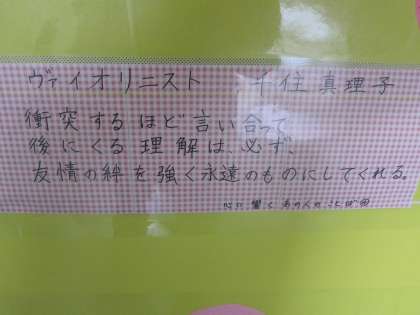 ヴァイオリニスト 千住 真理子
衝突するほど言い合って、
後にくる理解は、必ず、
友情の絆を強く永遠のものにしてくれる。
心に響くあの人のことば